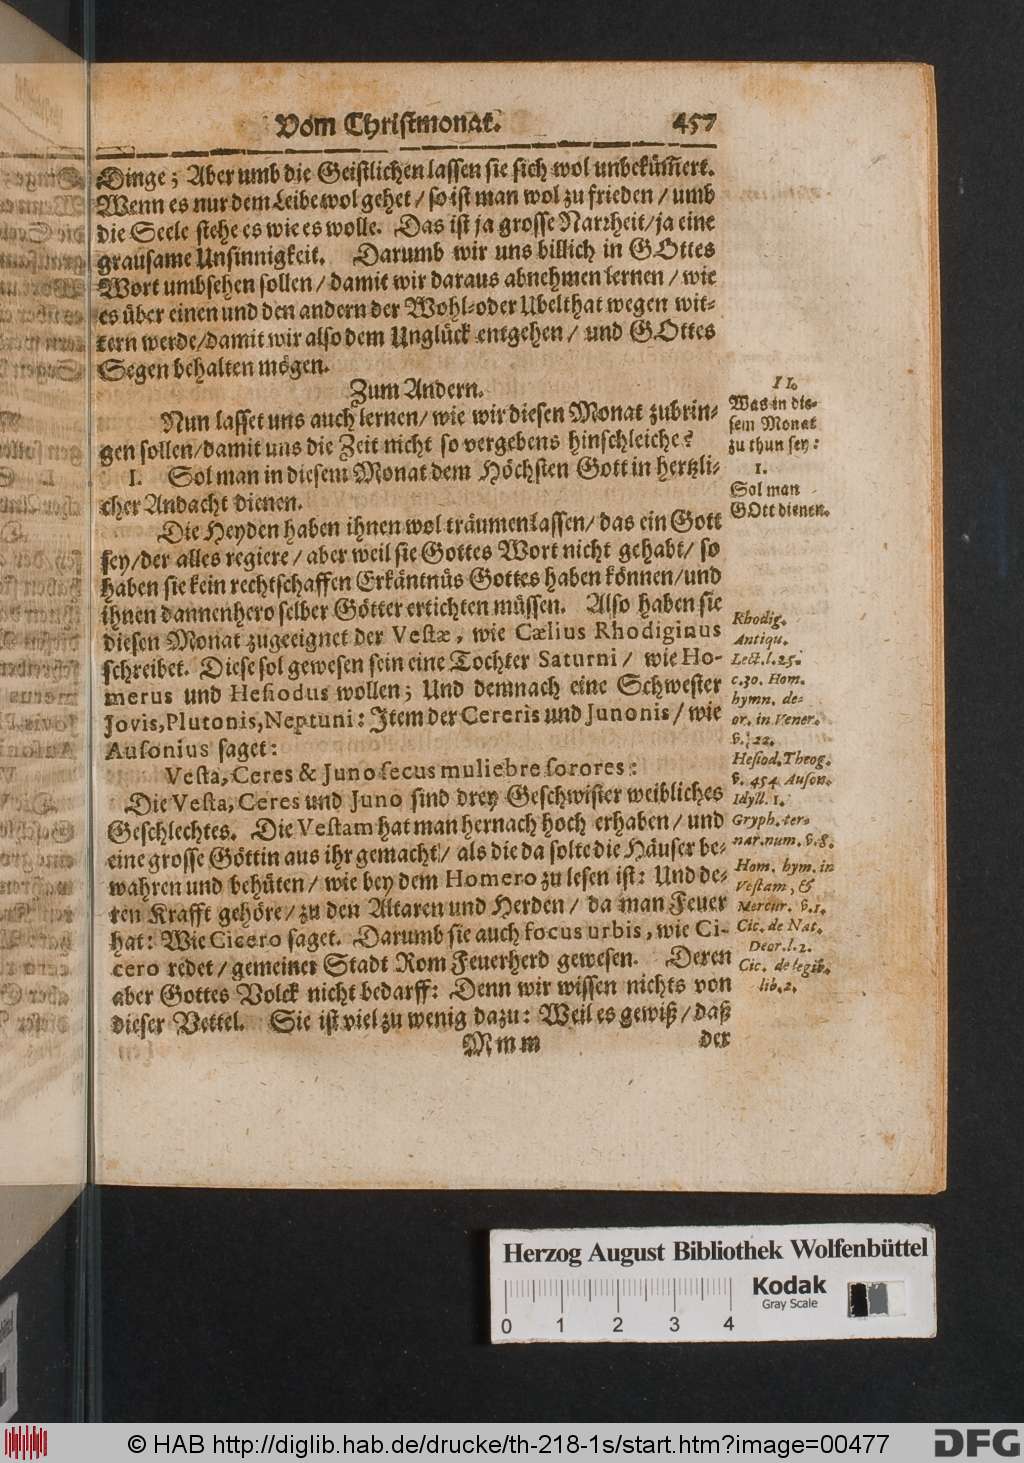 Vom Christmonat. 457
Dinge; Aber umb die Geistlichen lassen sie sich wol unbekům̃ert.
Wenn es nur dem Leibe wol gehet / so ist man wol zu frieden / umb
die Seele stehe es wie es wolle. Das ist ja grosse Narrheit / ja eine
grausame Unsinnigkeit. Darumb wir uns billich in GOttes
Wort umbsehen sollen / damit wir daraus abnehmen lernen / wie
es über einen und den andern der Wohl- oder Ubelthat wegen wit-
tern werde / damit wir also dem Unglück entgehen / und GOttes
Segen behalten mögen.
Zum Andern.
Nun lasset uns auch lernen / wie wir diesen Monat zubrin-
gen sollen / damit uns die Zeit nicht so vergebens hinschleiche?
I. Sol man in diesem Monat dem Höchsten Gott in hertzli-
cher Andacht dienen.
Die Heyden haben ihnen wol träumen lassen / das ein Gott
sey / der alles regiere / aber weil sie Gottes Wort nicht gehabt / so
haben sie kein rechtschaffen Erkäntnüs Gottes haben können / und
ihnen dannenhero selber Götter ertichten müssen. Also haben sie
diesen Monat zugeeignet der Vestæ, wie Cælius Rhodiginus
schreibet. Diese sol gewesen sein eine Tochter Saturni / wie Ho-
merus und Hesiodus wollen; Und demnach eine Schwester
Jovis, Plutonis, Neptuni: Item der Cereris und Junonis / wie
Ausonius saget:
Vesta, Ceres & Juno secus muliebre sorores:
Die Vesta, Ceres und Juno sind drey Geschwister weibliches
Geschlechtes. Die Vestam hat man hernach hoch erhaben / und
eine grosse Göttin aus ihr gemacht / als die da solte die Häuser be-
wahren und behüten / wie bey dem Homero zu lesen ist: Und de-
ren Krafft gehöre / zu den Altaren und Herden / da man Feuer
hat: Wie Cicero saget. Darumb sie auch focus urbis, wie Ci-
cero redet / gemeiner Stadt Rom Feuerherd gewesen. Deren
aber Gottes Volck nicht bedarff: Denn wir wissen nichts von
dieser Vettel. Sie ist viel zu wenig dazu: Weil es gewiß / daß
Mmm der
II.
Was in die-
sem Monat
zu thun sey:
1.
Sol man
GOtt dienen.
Rhodig.
Antiqu.
Lect. l. 25.
c. 30. Hom.
hymn. de-
or. in Vener.
v. 22.
Hesiod. Theog.
v. 454 Auson.
Idyll. 1.
Gryph. ter-
nar. num. v. 8.
Hom. hym. in
Vestam, &
Mercur. v. 1.
Cic. de Nat.
Deor. l. 2.
Cic. de legib.
lib. 2.
Herzog August Bibliothek Wolfenbüttel
Kodak
Gray Scale
0 1 2 3 4
© HAB http://diglib.hab.de/drucke/th-218-1s/start.htm?image=00477
DFG